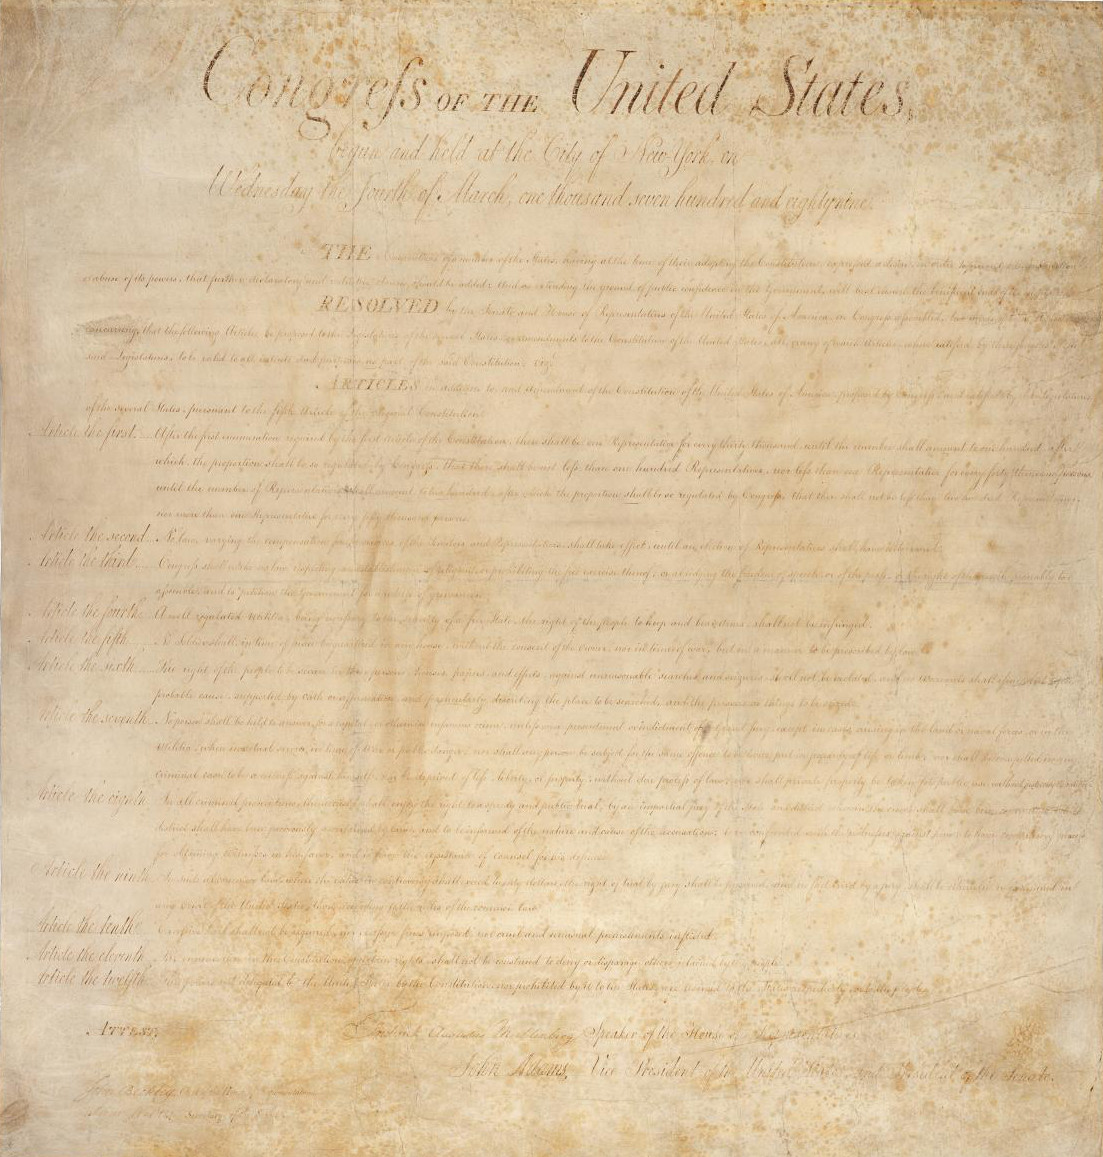 Congress OF THE United States,
begun and held at the City of New York, on
Wednesday the fourth of March, one thousand seven hundred and eighty nine.
THE Conventions of a number of the States, having at the time of their adopting the Constitution, expressed a desire, in order to prevent
abuse of its powers, that further declaratory and restrictive clauses should be added: And as extending the ground of public confidence in the Government, will best ensure the beneficent ends of
RESOLVED by the Senate and House of Representatives of the United States of America, in Congress assembled, two thirds of
concurring, that the following Articles be proposed to the Legislatures of the several States, as amendments to the Constitution of the United States, all, or any of which Articles, when ratified by three fourths of
said Legislatures, to be valid to all intents and purposes, as part of the said Constitution; viz.
ARTICLES in addition to, and Amendment of the Constitution of the United States of America, proposed by Congress, and ratified by the Legislatures
of the several States, pursuant to the fifth Article of the original Constitution.
Article the first. After the first enumeration required by the first Article of the Constitution, there shall be one Representative for every thirty thousand, until the number shall amount to one hundred, after
which, the proportion shall be so regulated by Congress, that there shall be not less than one hundred Representatives, nor less than one Representative for every forty thousand persons,
until the number of Representatives shall amount to two hundred, after which the proportion shall be so regulated by Congress, that there shall not be less than two hundred Representatives,
nor more than one Representative for every fifty thousand persons.
Article the second. No law, varying the compensation for the services of the Senators and Representatives, shall take effect, until an election of Representatives shall have intervened.
Article the third. Congress shall make no law respecting an establishment of religion, or prohibiting the free exercise thereof; or abridging the freedom of speech, or of the press; or the right of the people peaceably to
assemble, and to petition the Government for a redress of grievances.
Article the fourth. A well regulated Militia, being necessary to the security of a free State, the right of the people to keep and bear Arms, shall not be infringed.
Article the fifth. No Soldier shall, in time of peace be quartered in any house, without the consent of the owner, nor in time of war, but in a manner to be prescribed by law.
Article the sixth. The right of the people to be secure in their persons, houses, papers, and effects, against unreasonable searches and seizures, shall not be violated, and no Warrants shall issue, but upon
probable cause, supported by oath or affirmation, and particularly describing the place to be searched, and the persons or things to be seized.
Article the seventh. No person shall be held to answer for a capital, or otherwise infamous crime, unless on a presentment or indictment of a Grand jury, except in cases arising in the land or naval forces, or in the
Militia, when in actual service in time of War or public danger; nor shall any person be subject for the same offence to be twice put in jeopardy of life or limb; nor shall be compelled in any
criminal case to be a witness against himself, nor be deprived of life, liberty, or property, without due process of law; nor shall private property be taken for public use, without just compensation.
Article the eighth. In all criminal prosecutions, the accused shall enjoy the right to a speedy and public trial, by an impartial jury of the State and district wherein the crime shall have been committed, which
district shall have been previously ascertained by law, and to be informed of the nature and cause of the accusation; to be confronted with the witnesses against him; to have compulsory process
for obtaining witnesses in his favor, and to have the assistance of counsel for his defence.
Article the ninth. In suits at common law, where the value in controversy shall exceed twenty dollars, the right of trial by jury shall be preserved, and no fact, tried by a jury, shall be otherwise re-examined in
any court of the United States, than according to the rules of the common law.
Article the tenth. Excessive bail shall not be required, nor excessive fines imposed, nor cruel and unusual punishments inflicted.
Article the eleventh. The enumeration in the Constitution, of certain rights, shall not be construed to deny or disparage others retained by the people.
Article the twelfth. The powers not delegated to the United States by the Constitution, nor prohibited by it to the States, are reserved to the States respectively, or to the people.
ATTEST,
Frederick Augustus Muhlenberg Speaker of the House of Representatives.
John Adams, Vice President of the United States, and President of the Senate.
John Beckley,
Secretary of the Senate.